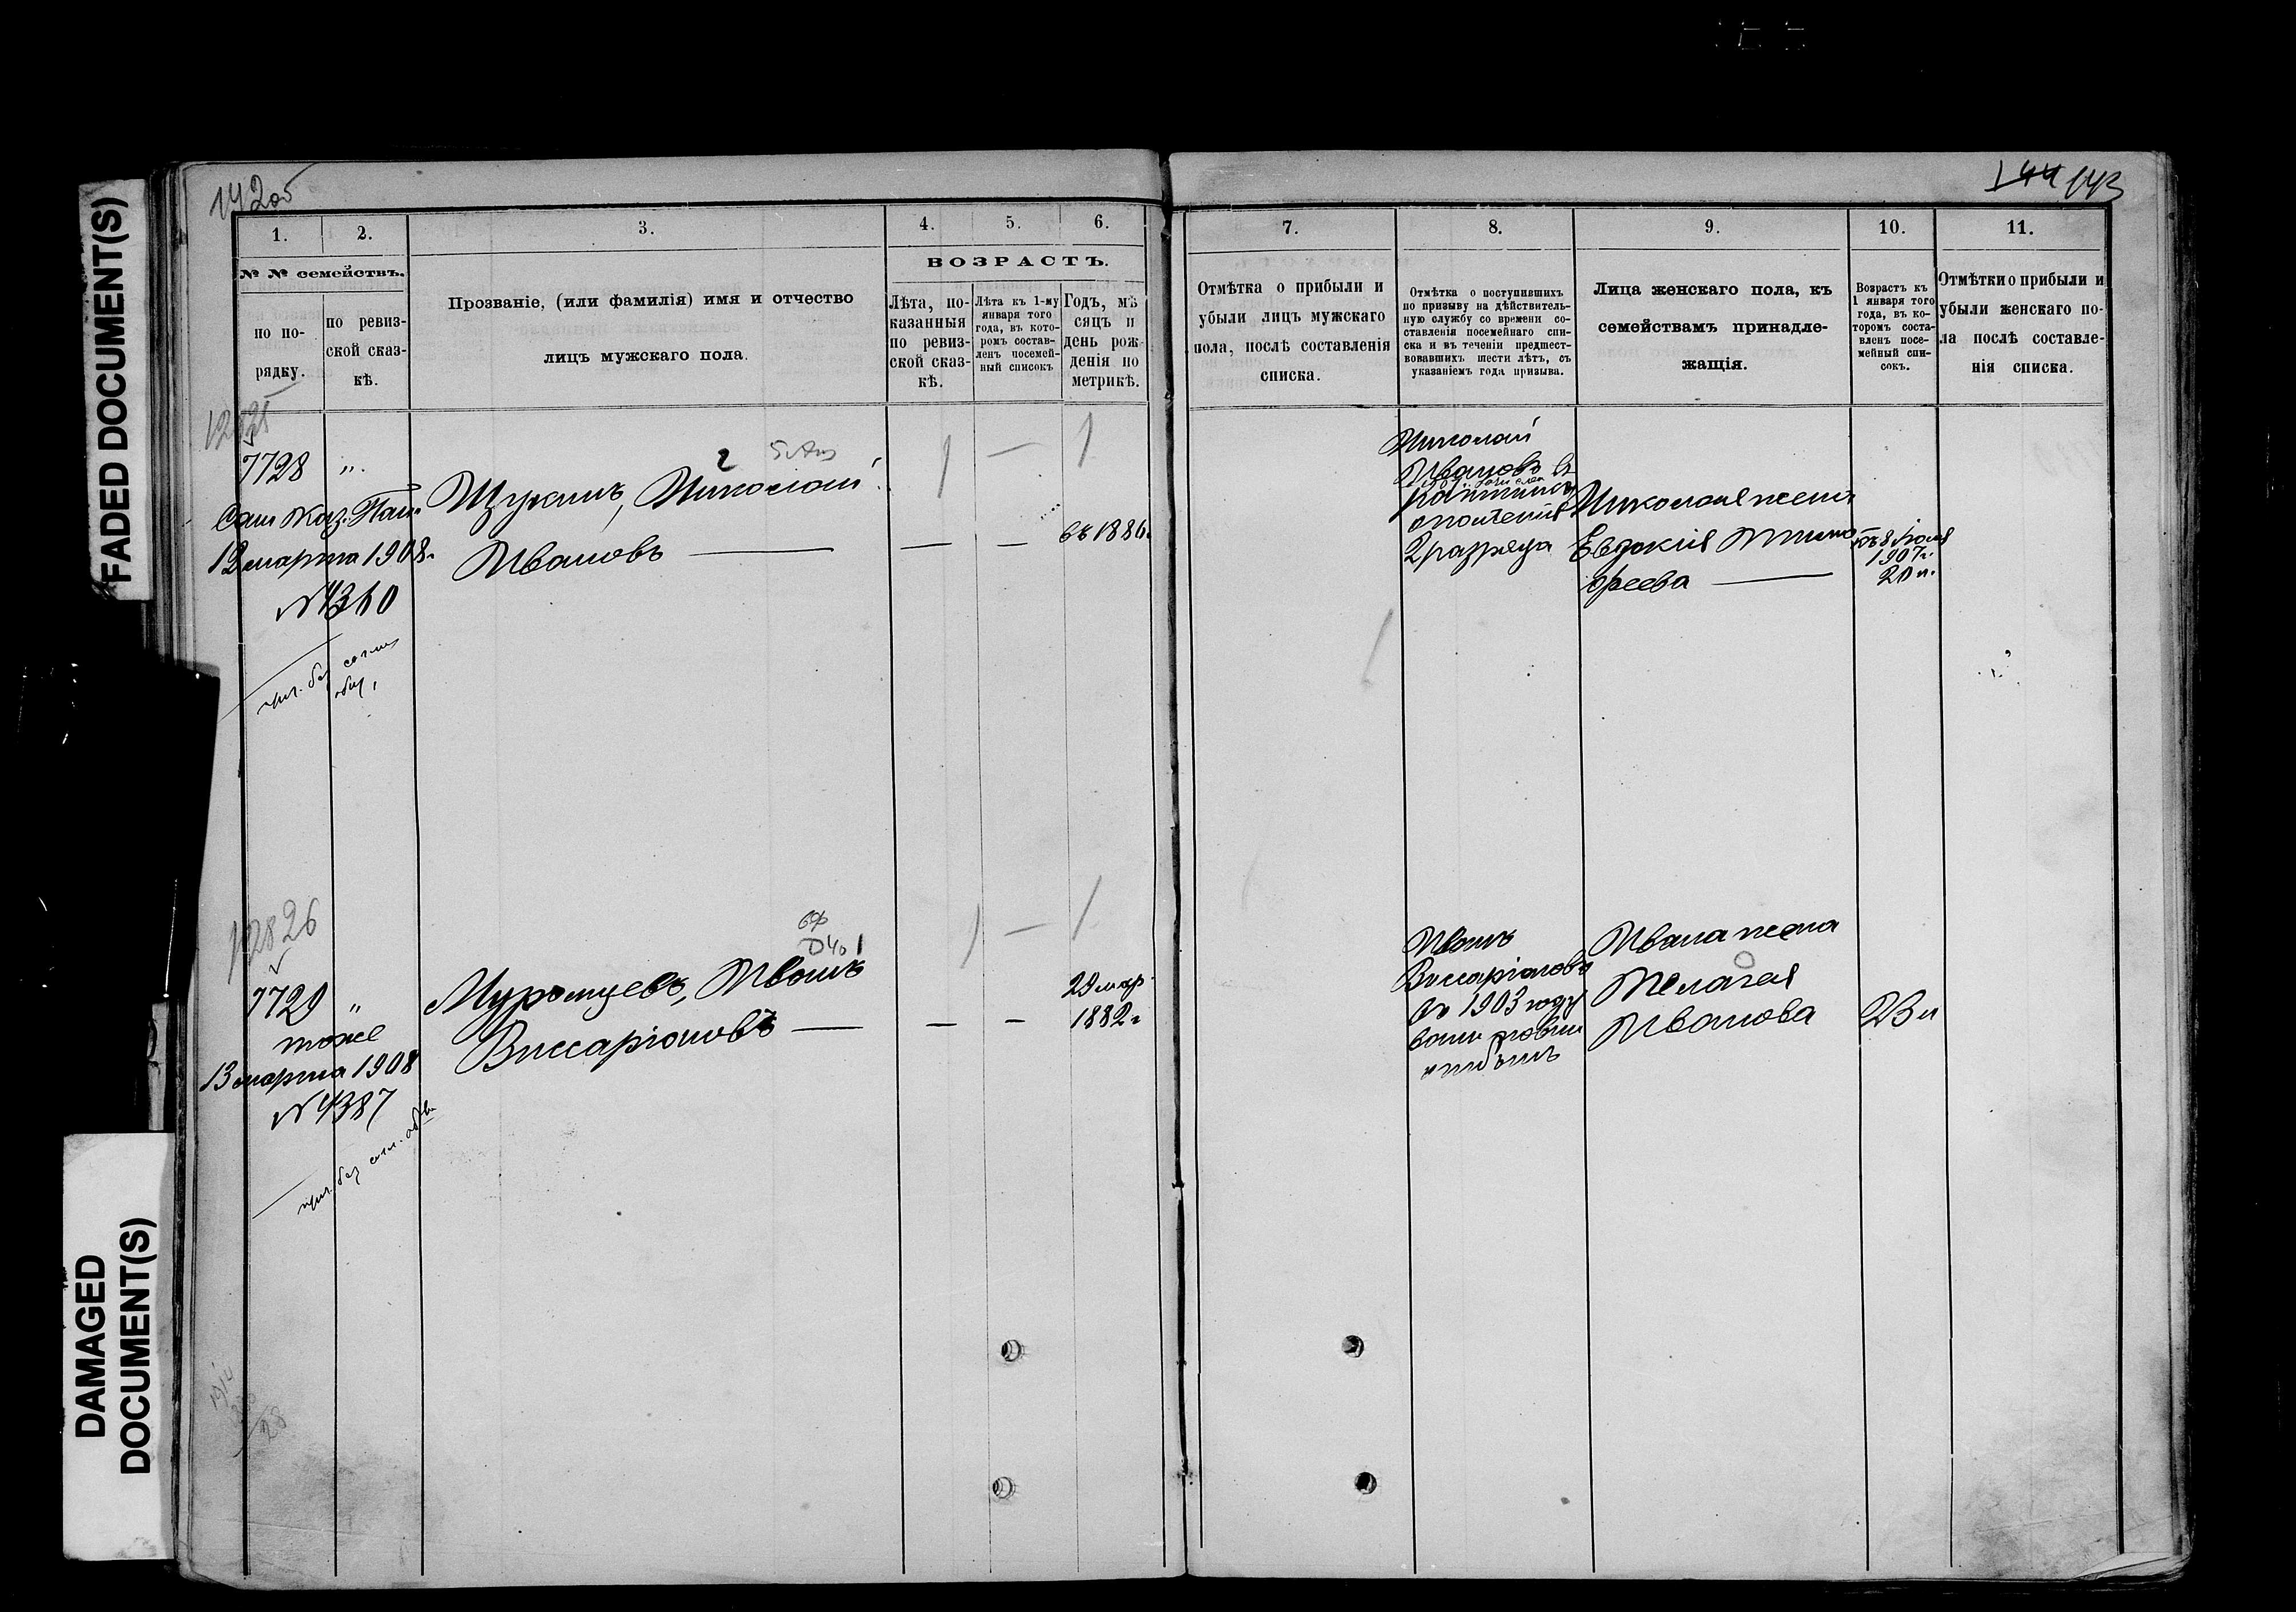 FADED DOCUMENT(S)
DAMAGED
DOCUMENT(S)
142об
144 143
1. 2. 3. 4. 5. 6.
№ № семействъ.
по по-
рядку.
по ревиз-
ской сказ-
кѣ.
Прозваніе, (или фамилія) имя и отчество
лицъ мужскаго пола.
ВОЗРАСТЪ.
Лѣта, по-
казанныя
по ревиз-
ской сказ-
кѣ.
Лѣта къ 1-му
января того
года, въ кото-
ромъ состав-
ленъ посемей-
ный списокъ
Годъ, мѣ
сяцъ и
день рож
денія по
метрикѣ.
7. 8. 9. 10. 11.
Отмѣтка о прибыли и
убыли лицъ мужскаго
пола, послѣ составленія
списка.
Отмѣтка о поступившихъ
по призыву на дѣйствитель-
ную службу со времени со-
ставленія посемейнаго спи-
ска и въ теченіи предшест-
вовавшихъ шести лѣтъ, съ
указаніемъ года призыва.
Лица женскаго пола, къ
семействамъ принадле-
жащія.
Возрастъ къ
1 января того
года, въ ко-
торомъ соста-
вленъ посе-
мейный спи-
сокъ.
Отмѣтки о прибыли и
убыли женскаго по-
ла послѣ составле-
нія списка.
12825
7728 "
Сам Каз. Пал.
12 марта 1908г
№ 4360
2
Щукинъ, Николай
Ивановъ — — —
въ 1886
Николай
Ивановъ
ратникъ
ополченія
2 разряда
Николая жена
Евдокія Тимо
феева —
къ 8 Іюля
1907г.
20 л.
12826
7729 "
тоже
13 марта 1908
№ 4387
прип. без согл. об-ва
1
Муромцевъ, Иванъ
Виссаріоновъ — — —
29 мар.
1882 г
Иванъ
Виссаріоновъ
въ 1903 году
Ивана жена
Пелагея
Иванова
23 л
1914
28